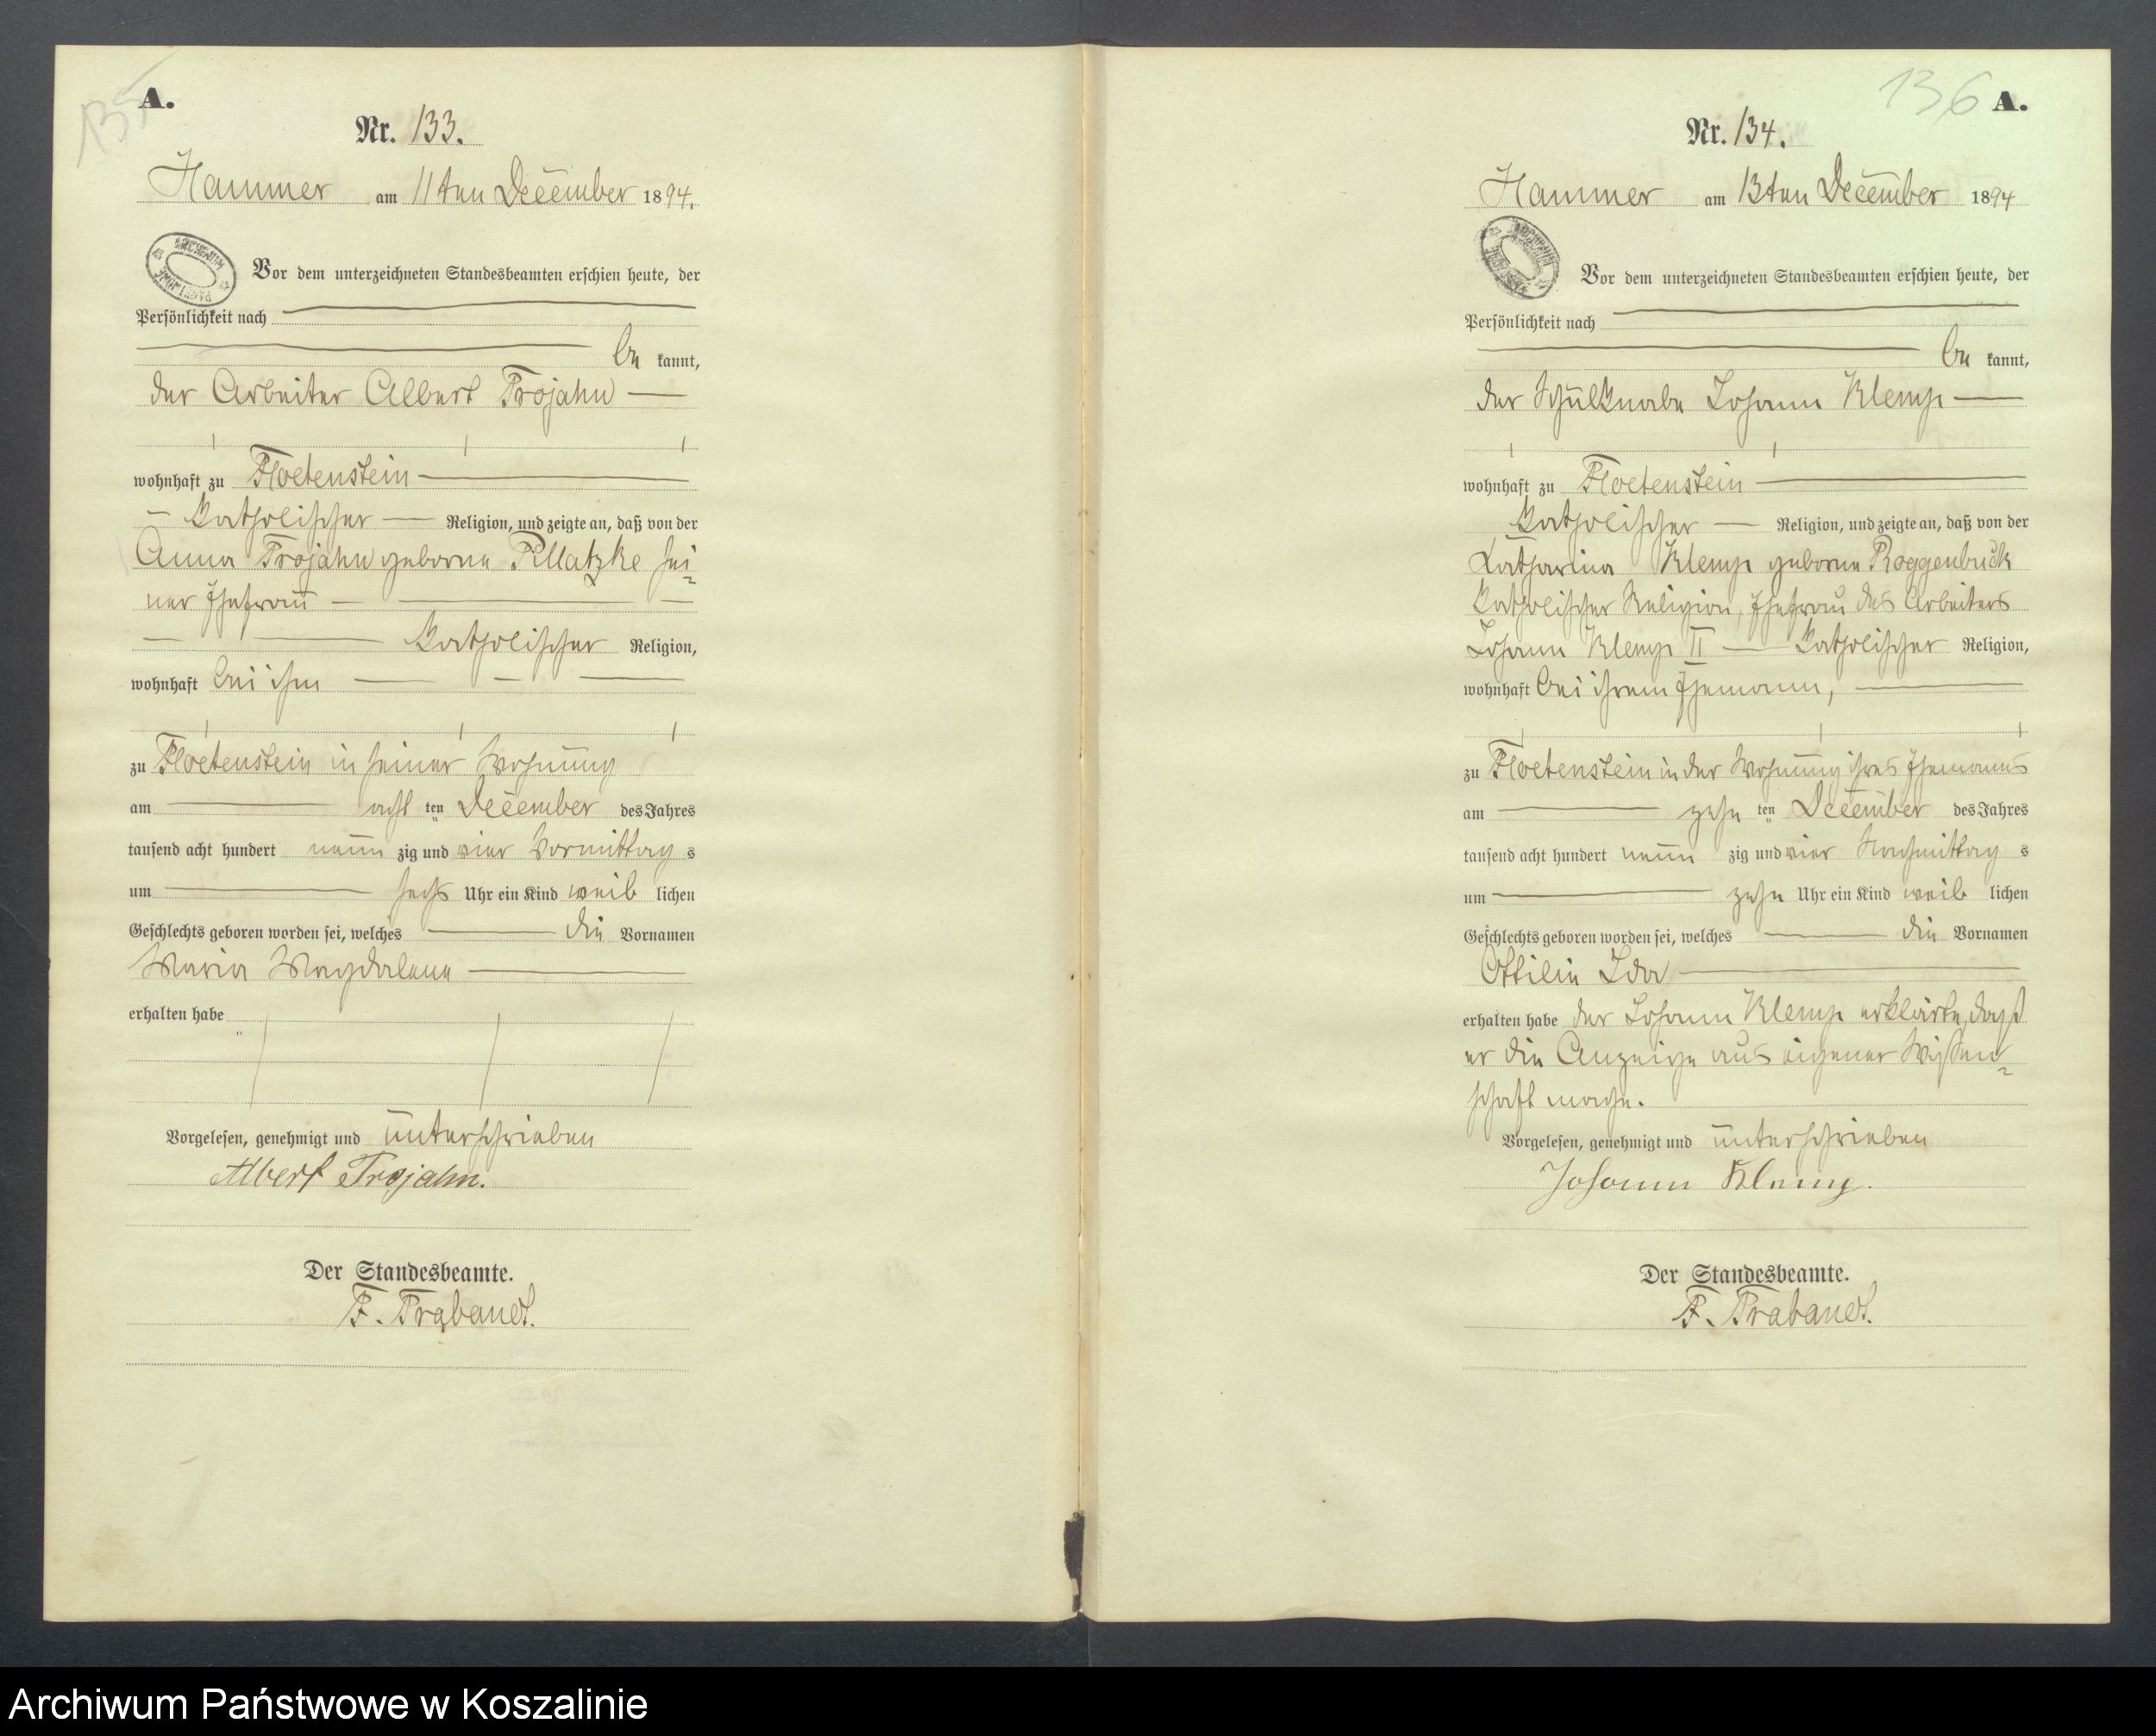 135
A.
Nr. 133.
Hammer am 11ten December 1894.
ARCHIWUM PAŃSTWOWE
Vor dem unterzeichneten Standesbeamten erschien heute, der
Persönlichkeit nach
be kannt,
der Arbeiter Albert Trojahn
wohnhaft zu Floetenstein
katholischer Religion, und zeigte an, daß von der
Anna Trojahn geborne Rllatzke sei-
ner Ehefrau
katholischer Religion,
wohnhaft bei ihm
zu Floetenstein in seiner Wohnung
am acht ten December des Jahres
tausend acht hundert neun zig und vier Vormittag s
um sechs Uhr ein Kind weib lichen
Geschlechts geboren worden sei, welches die Vornamen
Maria Magdalena
erhalten habe
Vorgelesen, genehmigt und unterschrieben
Albert Trojahn.
Der Standesbeamte.
F. Trabandt.
136 A.
Nr. 134.
Hammer am 13ten December 1894
Vor dem unterzeichneten Standesbeamten erschien heute, der
Persönlichkeit nach
be kannt,
der Schulknabe Johann Klemp
wohnhaft zu Floetenstein
katholischer Religion, und zeigte an, daß von der
Katharina Klemp geborne Roggenbuck
katholischer Religion, Ehefrau des Arbeiters
Johann Klemp II katholischer Religion,
wohnhaft bei ihrem Ehemann,
zu Floetenstein in der Wohnung ihres Ehemanns
am zehn ten December des Jahres
tausend acht hundert neun zig und vier Nachmittag s
um zehn Uhr ein Kind weib lichen
Geschlechts geboren worden sei, welches die Vornamen
Ottilie Ida
erhalten habe der Johann Klemp erklärte, daß
er die Anzeige aus eigener Wissen-
schaft mache.
Vorgelesen, genehmigt und unterschrieben
Johann Klemp.
Der Standesbeamte.
F. Trabandt.
Archiwum Państwowe w Koszalinie